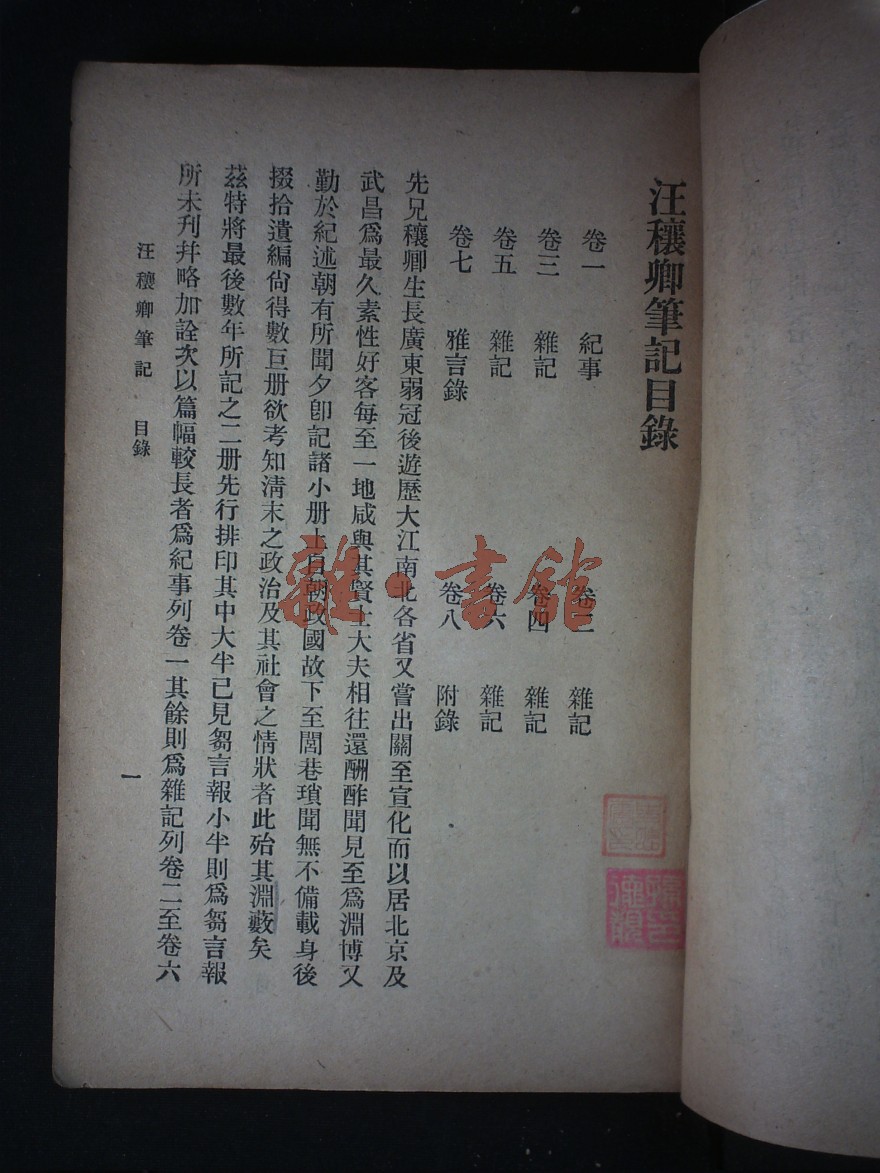 汪穰卿筆記目錄
卷一 紀事 卷二 雜記
卷三 雜記 卷四 雜記
卷五 雜記 卷六 雜記
卷七 雅言錄 卷八 附錄
先兄穰卿生長廣東弱冠後遊歷大江南北各省又嘗出關至宣化而以居北京及
武昌爲最久素性好客每至一地咸與其賢士大夫相往還酬酢聞見至爲淵博又
勤於紀述朝有所聞夕卽記諸小册上自朝政國故下至閭巷瑣聞無不備載身後
掇拾遺編尙得數巨册欲考知淸末之政治及其社會之情狀者此殆其淵藪矣
茲特將最後數年所記之二册先行排印其中大半已見芻言報小半則爲芻言報
所未刋幷略加詮次以篇幅較長者爲紀事列卷一其餘則爲雜記列卷二至卷六
汪穰卿筆記 目錄 一
雜·書館